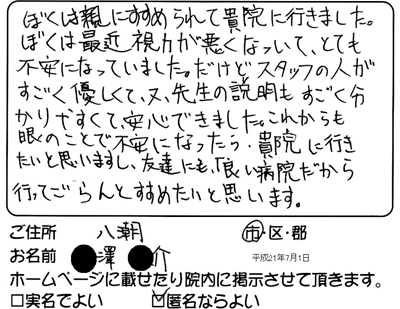 ぼくは親にすすめられて貴院に行きました。
ぼくは最近視力が悪くなっいて、とても
不安になっていました。だけどスタッフの人が
すごく優しくて、又、先生の説明もすごく分
かりやすくて、安心できました。これからも
眼のことで不安になったら、貴院に行き
たいと思いますし、友達にも、「良い病院だから
行ってごらんとすすめたいと思います。
ご住所 八潮 市・区・郡
お名前 澤 介 平成21年7月1日
ホームページに載せたり院内に掲示させて頂きます。
□実名でよい ☑匿名ならよい